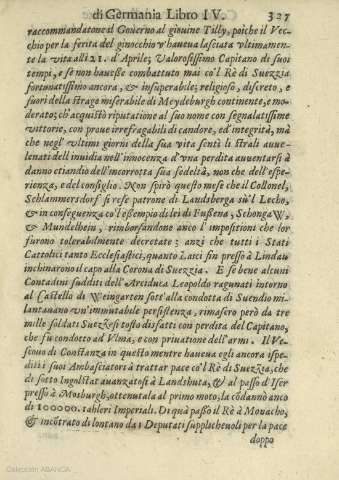 di Germania Libro IV. 327
raccommandatone al Governo al giouine Tilly, poiche il Vec-
chio per la ferita del ginocchio v'haueua lasciata vltimamen-
te la vita alli 21. d'Aprile; Valorosissimo Capitano di suoi
tempi, e se non hauesse combattuto mai co'l Rè di Suezzia
fortunatissimo ancora, & insuperabile; religioso, discreto, e
fuori della strage miserabile di Meydeburgh continente, e mo-
derato; ch'acquistò riputatione al suo nome con segnalatissime
vittorie, con proue irrefragabili di candore, ed'integrità, mà
che negl'vltimi giorni della sua vita sentì li strali auue-
lenati dell'inuidia nell'innocenza d'vna perdita auuentarsi à
danno etiandio dell'incorrotta sua fedeltà, non che dell'espe-
rienza, e del consiglio. Non spirò questo mese che il Collonel,
Schlammersdorf si rese patrone di Landsberga sù'l Lecho,
& in conseguenza co'l essempio di lei di Fussena, SchongaW,
& Mundelhein, rimborsandone anco l'impositioni che lor
furono tolerabilmente decretate; anzi che tutti i Stati
Cattolici tanto Ecclesiastici, quanto Laici fin presso à Lindau
inchinarono il capo alla Corona di Suezzia. E se bene alcuni
Contadini sudditi dell'Arciduca Leopoldo ragunati intorno
al Castello di Weingarten sott'alla condotta di Suendio mi-
lantauano vn'immutabile persistenza, rimasero però da tre
mille soldati Suezzesi tosto disfatti con perdita del Capitano,
che fù condotto ad Vlma, e con priuatione dell'armi. Il Ve-
scouo di Constanza in questo mentre haueua egli ancora spe-
diti i suoi Ambasciatori à trattar pace co'l Rè di Suezzia, che
di sotto Ingolstat auanzatosi à Landshuta, & al passo d'Iser
presso à Mosburgh, ottenutala al primo moto, la còdannò anco
di 100000. talleri Imperiali. Di quà passò il Rè à Monacho,
& incòtrato di lontano da i Deputati supplicheuoli per la pace
doppo
Colección ABANCA